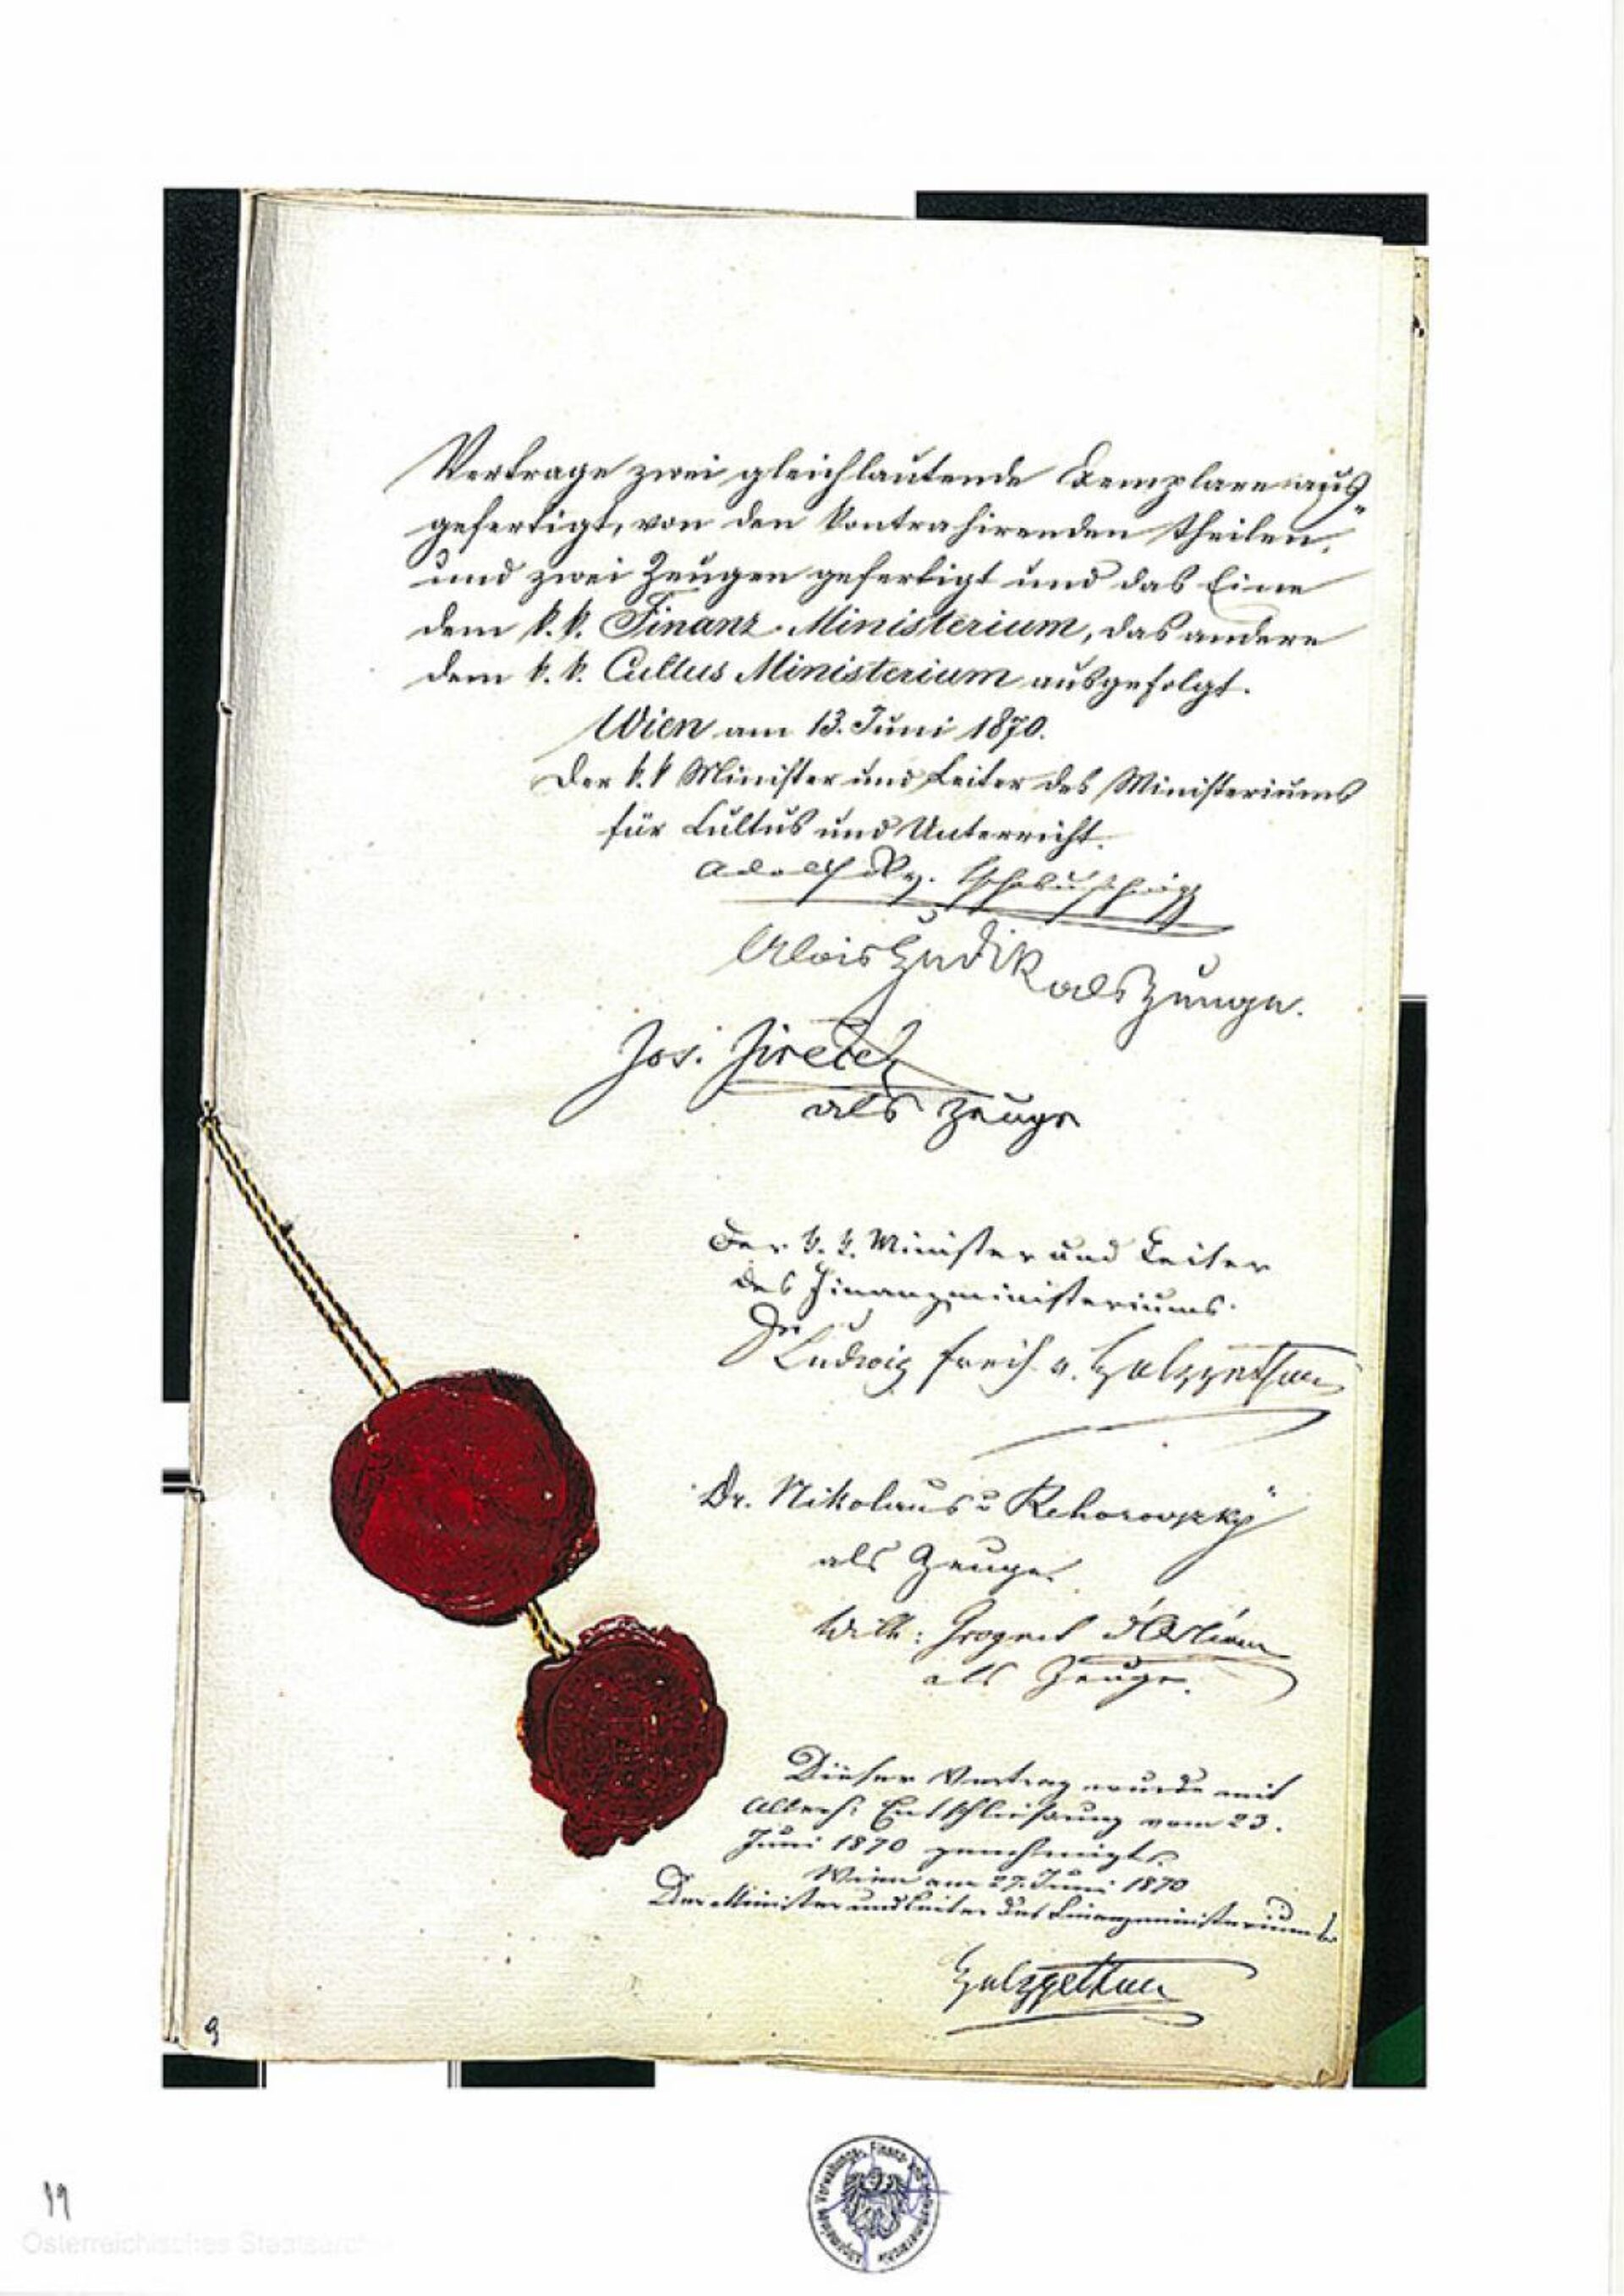 Vertrage zwei gleichlautende Exemplare aus-
gefertigt, von den kontrahirenden Theilen,
und zwei Zeugen gefertigt und das Eine
dem k. k. Finanz-Ministerium, das andere
dem k. k. Cultus Ministerium ausgefolgt.
Wien am 13. Juni 1870.
Der k. k Minister und Leiter des Ministeriums
für Cultus und Unterricht.
Adolf Tschabuschnigg
Alois als Zeuge.
Jos. Jireček
als Zeuge
Der k. k. Minister und Leiter
des Finanzministeriums.
Dr Ludwig Freih. v. Holzgethan
Dr. Nikolaus Rehorovszky
als Zeuge.
Wilh: Grognet d'Orleans
als Zeuge.
Dieser Vertrag wurde mit
Allerh: Entschließung vom 23.
Juni 1870 genehmigt.
Wien am 27. Juni 1870
Der Minister und Leiter des Finanzministeriums
Holzgethan
9
19
Österreichisches Staatsarchiv